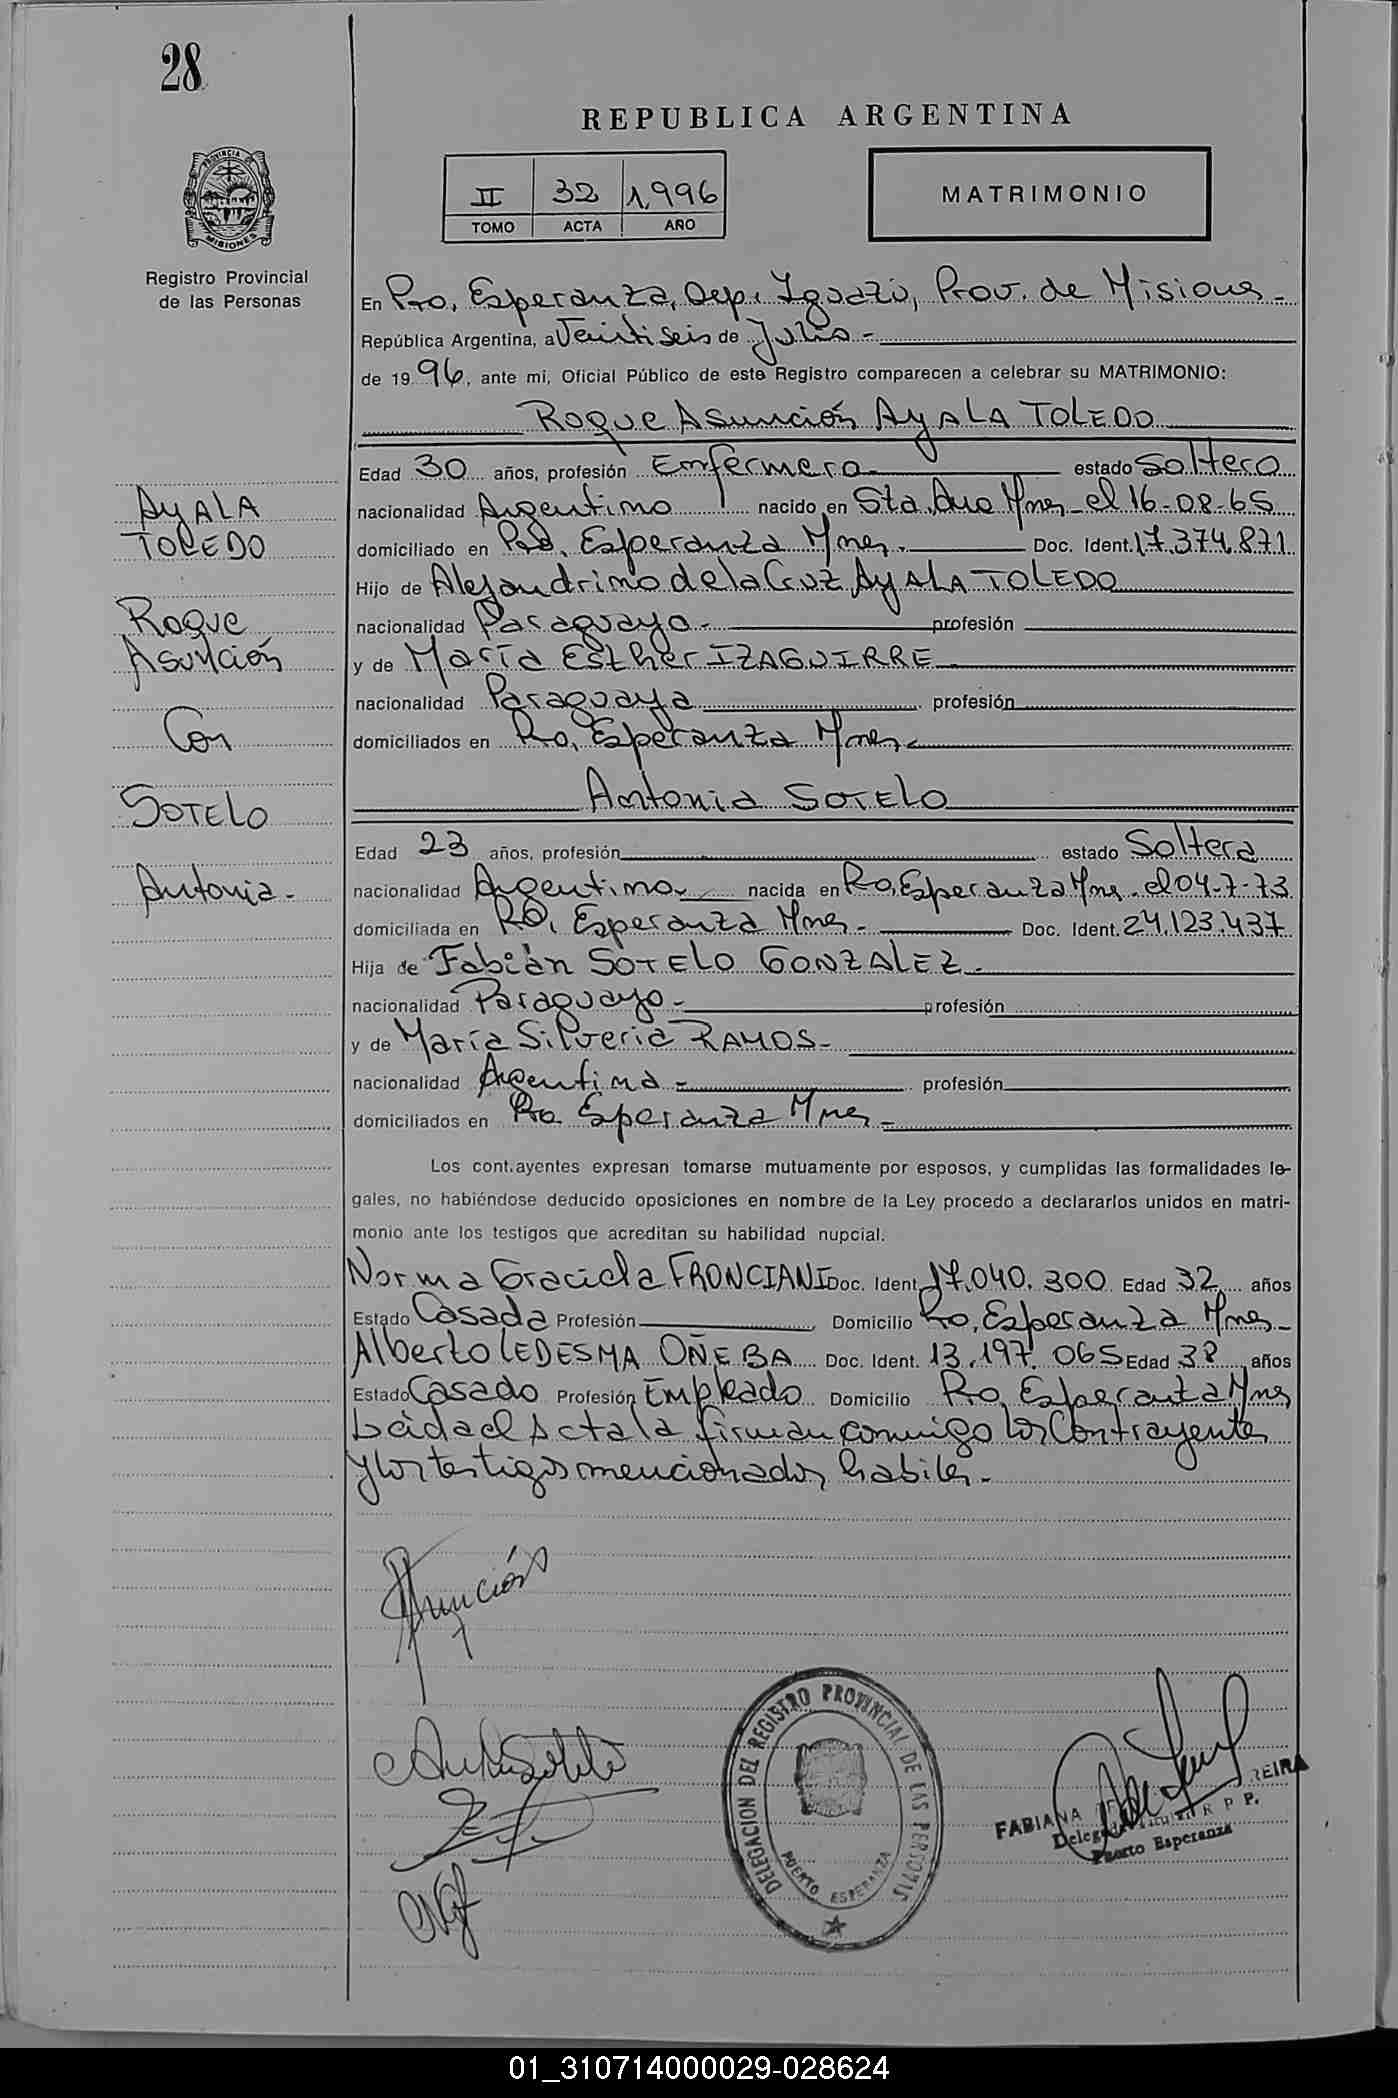 28
REPUBLICA ARGENTINA
PROVINCIA DE
MISIONES
Registro Provincial
de las Personas
II 32 1.996
TOMO ACTA AÑO
MATRIMONIO
En Pto. Esperanza, Dep. Iguazú, Prov. de Misiones -
República Argentina, a Veintiseis de Julio -
de 19 96, ante mi, Oficial Público de este Registro comparecen a celebrar su MATRIMONIO:
Roque Asunción AYALA TOLEDO
Edad 30 años, profesión Enfermero estado Soltero
nacionalidad Argentino nacido en Sta. Ana Mnes - el 16-08-65
domiciliado en Pto. Esperanza Mnes. Doc. Ident. 17.374.871
Hijo de Alejandrino de la Cruz AYALA TOLEDO
nacionalidad Paraguayo - profesión
y de María Esther IZAGUIRRE
nacionalidad Paraguaya profesión
domiciliados en Pto. Esperanza Mnes.
Antonia SOTELO
Edad 23 años, profesión estado Soltera
nacionalidad Argentina nacida en Pto. Esperanza Mnes. el 04-7-73
domiciliada en Pto. Esperanza Mnes - Doc. Ident. 24.123.437
Hija de Fabián SOTELO GONZALEZ -
nacionalidad Paraguayo - profesión
y de María Silveria RAMOS -
nacionalidad Argentina - profesión
domiciliados en Pto. Esperanza Mnes -
Los contrayentes expresan tomarse mutuamente por esposos, y cumplidas las formalidades le-
gales, no habiéndose deducido oposiciones en nombre de la Ley procedo a declararlos unidos en matri-
monio ante los testigos que acreditan su habilidad nupcial.
Norma Graciela FRONCIANI Doc. Ident. 17.040.300 Edad 32 años
Estado Casada Profesión Domicilio Pto. Esperanza Mnes -
Alberto LEDESMA OÑEBA Doc. Ident. 13.197.065 Edad 38 años
Estado Casado Profesión Empleado Domicilio Pto. Esperanza Mnes
Leida el Acta la firman conmigo los Contrayentes
y los testigos mencionados habiles. -
AYALA
TOLEDO
Roque
Asunción
Con
SOTELO
Antonia -
Asunción
DELEGACION DEL REGISTRO PROVINCIAL DE LAS PERSONAS
PUERTO ESPERANZA
FABIANA
R P P.
Puerto Esperanza
01_310714000029-028624